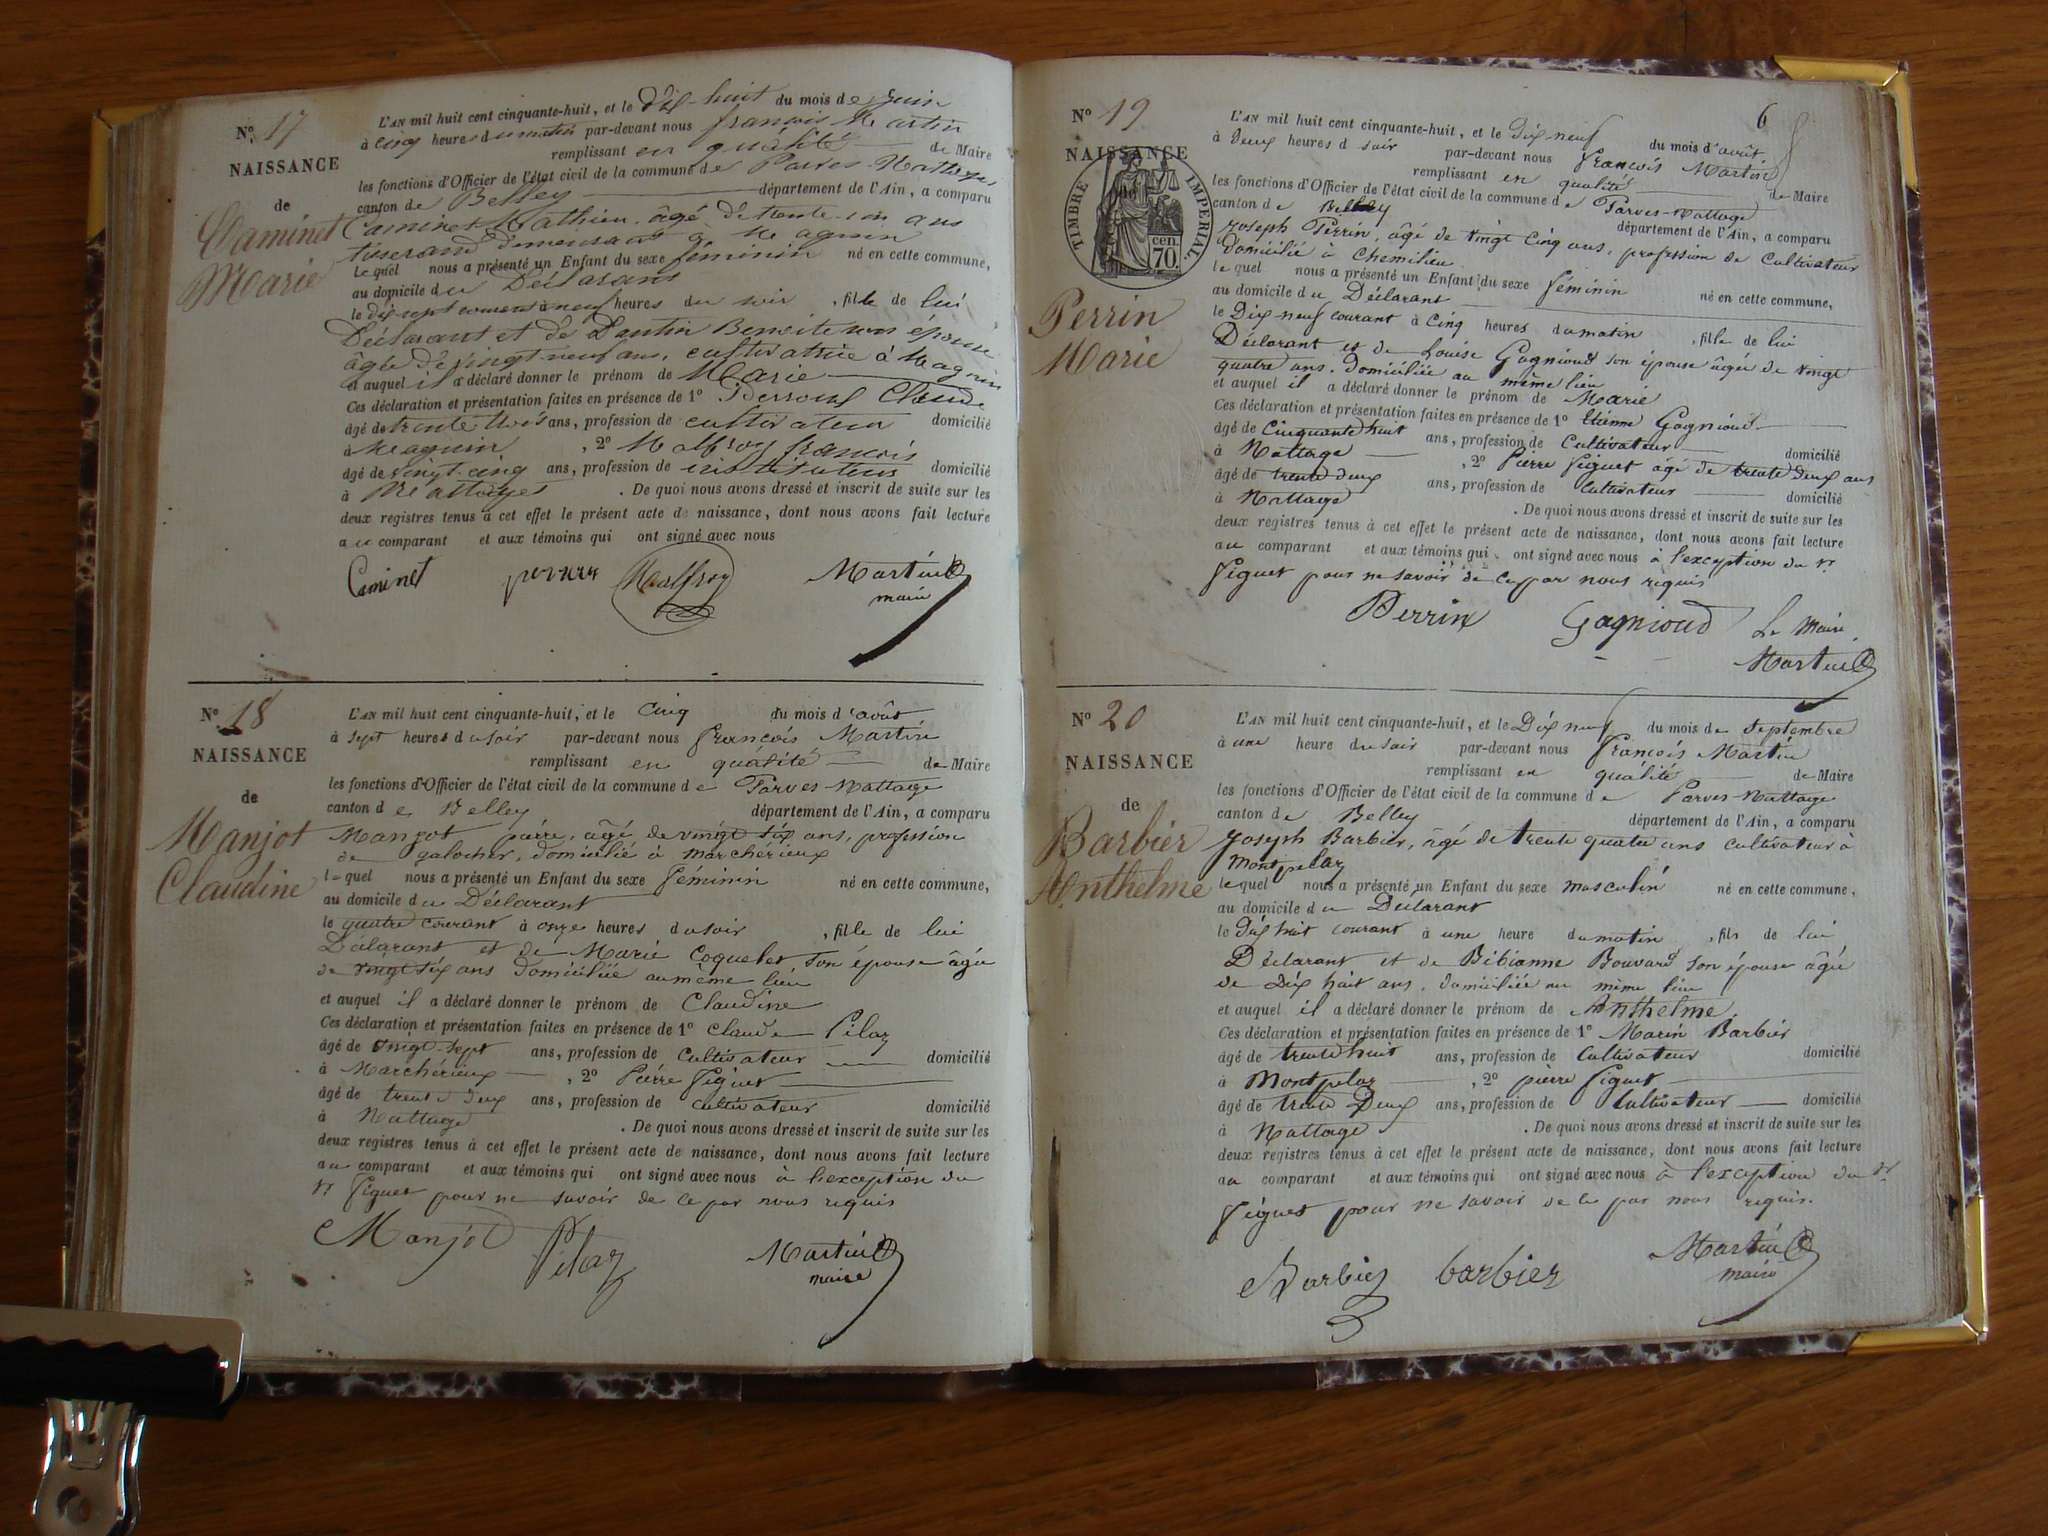 N° 17
NAISSANCE
de
Caminet
Marie
L'AN mil huit cent cinquante-huit, et le dix-huit du mois de juin
à cinq heures du matin par-devant nous françois Martin
remplissant en qualité de Maire
les fonctions d'Officier de l'état civil de la commune de Parves-Nattages
canton de Belley département de l'Ain, a comparu
Caminet Mathieu, âgé de trente-un ans
tisserand demeurant à Meagnin
le quel nous a présenté un Enfant du sexe féminin né en cette commune,
au domicile du Déclarant
le dix-sept courant à neuf heures du soir, fille de lui
Déclarant et de Dantin Benoite son épouse
âgée de vingt-neuf ans, cultivatrice à Meagnin
et auquel il a déclaré donner le prénom de Marie
Ces déclaration et présentation faites en présence de 1° Claude
âgé de trente trois ans, profession de cultivateur domicilié
à Meagnin, 2° Malfroy françois
âgé de vingt-cinq ans, profession de instituteur domicilié
à Nattages. De quoi nous avons dressé et inscrit de suite sur les
deux registres tenus à cet effet le présent acte de naissance, dont nous avons fait lecture
au comparant et aux témoins qui ont signé avec nous
Caminet Malfroy Martin
maire
N° 18
NAISSANCE
de
Manjot
Claudine
L'AN mil huit cent cinquante-huit, et le Cinq du mois d'août
à sept heures du soir par-devant nous françois Martin
remplissant en qualité de Maire
les fonctions d'Officier de l'état civil de la commune de Parves-Nattage
canton de Belley département de l'Ain, a comparu
Manjot pierre, âgé de vingt six ans, profession
de galocher, domicilié à marchérieux
le quel nous a présenté un Enfant du sexe féminin né en cette commune,
au domicile du Déclarant
le quatre courant à onze heures du soir, fille de lui
Déclarant et de Marie Coquelet son épouse âgée
de vingt six ans domiciliée au même lieu
et auquel il a déclaré donner le prénom de Claudine
Ces déclaration et présentation faites en présence de 1° Claude Pilaz
âgé de vingt-sept ans, profession de Cultivateur domicilié
à Marchérieux, 2° Pierre Figuet
âgé de trente deux ans, profession de cultivateur domicilié
à Nattage. De quoi nous avons dressé et inscrit de suite sur les
deux registres tenus à cet effet le présent acte de naissance, dont nous avons fait lecture
au comparant et aux témoins qui ont signé avec nous à l'exception du
Sr Figuet pour ne savoir de ce par nous requis
Manjot Pilaz Martin
maire
6
N° 19
NAISSANCE
de
TIMBRE IMPERIAL
70 cen.
Perrin
Marie
L'AN mil huit cent cinquante-huit, et le Dix neuf du mois d'août.
à deux heures d soir par-devant nous françois Martin
remplissant en qualité de Maire
les fonctions d'Officier de l'état civil de la commune de Parves-Nattage
canton de Belley département de l'Ain, a comparu
Joseph Perrin, âgé de vingt cinq ans, profession de Cultivateur
domicilié à Chemilieu
le quel nous a présenté un Enfant du sexe féminin né en cette commune,
au domicile du Déclarant
le Dix neuf courant à Cinq heures du matin, fille de lui
Déclarant et de Louise Gagnioud son épouse âgée de vingt
quatre ans. domiciliée au même lieu
et auquel il a déclaré donner le prénom de Marie
Ces déclaration et présentation faites en présence de 1° Etienne Gagnioud
âgé de Cinquante huit ans, profession de Cultivateur domicilié
à Nattage, 2° Pierre Figuet âgé de trente deux ans
âgé de trente deux ans, profession de Cultivateur domicilié
à Nattage. De quoi nous avons dressé et inscrit de suite sur les
deux registres tenus à cet effet le présent acte de naissance, dont nous avons fait lecture
au comparant et aux témoins qui ont signé avec nous à l'exception du Sr
Figuet pour ne savoir de ce par nous requis
Perrin Gagnioud Le Maire
Martin
N° 20
NAISSANCE
de
Barbier
Anthelme
L'AN mil huit cent cinquante-huit, et le Dix neuf du mois de septembre
à une heure du soir par-devant nous françois Martin
remplissant en qualité de Maire
les fonctions d'Officier de l'état civil de la commune de Parves-Nattage
canton de Belley département de l'Ain, a comparu
Joseph Barbier, âgé de trente quatre ans cultivateur à
Montpelaz
le quel nous a présenté un Enfant du sexe masculin né en cette commune,
au domicile du Déclarant
le dix huit courant à une heure du matin, fils de lui
Déclarant et de Bibianne Bouvard son épouse âgée
de Dix huit ans, domiciliée au même lieu
et auquel il a déclaré donner le prénom de Anthelme
Ces déclaration et présentation faites en présence de 1° Marin Barbier
âgé de trente huit ans, profession de Cultivateur domicilié
à Montpelaz, 2° pierre Figuet
âgé de trente Deux ans, profession de Cultivateur domicilié
à Nattage. De quoi nous avons dressé et inscrit de suite sur les
deux registres tenus à cet effet le présent acte de naissance, dont nous avons fait lecture
au comparant et aux témoins qui ont signé avec nous à l'exception du Sr
Figuet pour ne savoir de ce par nous requis.
Barbier barbier Martin
maire